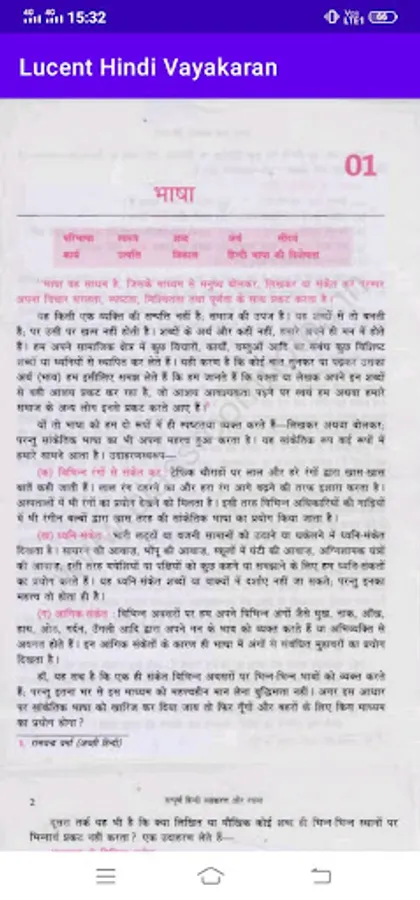 15:32
Lucent Hindi Vayakaran
01
भाषा
परिभाषा स्वरूप शब्द अर्थ सौंदर्य
कार्य उत्पत्ति विकास हिन्दी भाषा की विशेषता
'भाषा वह साधन है, जिसके माध्यम से मनुष्य बोलकर, लिखकर या संकेत कर परस्पर
अपना विचार सरलता, स्पष्टता, निश्चितता तथा पूर्णता के साथ प्रकट करता है।'
यह किसी एक व्यक्ति की सम्पत्ति नहीं है, समाज की उपज है। यह शब्दों से तो बनती
है; पर उसी पर खत्म नहीं होती है। शब्दों के अर्थ और कहीं नहीं, हमारे अपने ही मन में होते
हैं। हम अपने सामाजिक क्षेत्र में कुछ विचारों, कार्यों, वस्तुओं आदि का संबंध कुछ विशिष्ट
शब्दों या ध्वनियों से स्थापित कर लेते हैं। यही कारण है कि कोई बात सुनकर या पढ़कर उसका
अर्थ (भाव) हम इसीलिए समझ लेते हैं कि हम जानते हैं कि वक्ता या लेखक अपने इन शब्दों
से वही आशय प्रकट कर रहा है, जो आशय आवश्यकता पड़ने पर स्वयं हम अथवा हमारे
समाज के अन्य लोग इनसे प्रकट करते आए हैं।
यों तो भाषा को हम दो रूपों में ही स्पष्टतया व्यक्त करते हैं—लिखकर अथवा बोलकर;
परन्तु सांकेतिक भाषा का भी अपना महत्त्व हुआ करता है। यह सांकेतिक रूप कई रूपों में
हमारे सामने आता है। उदाहरणस्वरूप—
(क) विभिन्न रंगों से संकेत कर : ट्रैफिक चौराहों पर लाल और हरे रंगों द्वारा खास-खास
बातें कही जाती हैं। लाल रंग ठहरने का और हरा रंग आगे बढ़ने की तरफ इशारा करता है।
अस्पतालों में भी रंगों का प्रयोग देखने को मिलता है। इसी तरह विभिन्न अधिकारियों की गाड़ियों
में भी रंगीन बल्बों द्वारा खास तरह की सांकेतिक भाषा का प्रयोग किया जाता है।
(ख) ध्वनि-संकेत : भारी लट्ठों या वजनी सामानों को उठाने या धकेलने में ध्वनि-संकेत
दिखता है। सायरन की आवाज, भोंपू की आवाज, स्कूलों में घंटी की आवाज, अग्निशामक यंत्रों
की आवाज, इसी तरह मवेशियों या पक्षियों को कुछ कहने या समझाने के लिए हम ध्वनि-संकेतों
का प्रयोग करते हैं। यह ध्वनि संकेत शब्दों या वाक्यों में दर्शाए नहीं जा सकते; परन्तु इनका
महत्त्व तो होता ही है।
(ग) आंगिक-संकेत : विभिन्न अवसरों पर हम अपने विभिन्न अंगों जैसे मुख, नाक, आँख,
हाथ, ओठ, गर्दन, उँगली आदि द्वारा अपने मन के भाव को व्यक्त करते हैं या अभिव्यक्ति से
अवगत होते हैं। इन आंगिक संकेतों के कारण ही भाषा में अंगों से संबंधित मुहावरों का प्रयोग
दिखता है।
हाँ, यह सच है कि एक ही संकेत विभिन्न अवसरों पर भिन्न-भिन्न भावों को व्यक्त करते
हैं; परन्तु इतना भर से इस माध्यम को महत्त्वहीन मान लेना बुद्धिमत्ता नहीं। अगर इस आधार
पर सांकेतिक भाषा को खारिज कर दिया जाय तो फिर गूँगों और बहरों के लिए किस माध्यम
का प्रयोग होगा?
1. रामचन्द्र वर्मा (अच्छी हिन्दी)
2 सम्पूर्ण हिन्दी व्याकरण और रचना
दूसरा तर्क यह भी है कि क्या लिखित या मौखिक कोई शब्द ही भिन्न-भिन्न स्थानों पर
भिन्नार्थ प्रकट नहीं करता? एक उदाहरण लेते हैं—